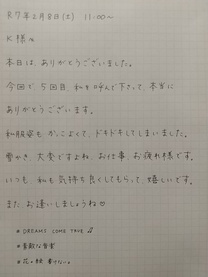 R7年2月8日(土) 11:00~
K様へ
本日は、ありがとうございました。
今回で、5回目、私を呼んで下さって、本当に
ありがとうございます。
和服姿もかっこよくて、ドキドキしてしまいました。
大変ですよね、お仕事、お疲れ様です。
いつも、私も気持ち良くしてもらって、嬉しいです。
また、お逢いしましょうね♡
* DREAMS COME TRUE ♫
* 素敵な音楽